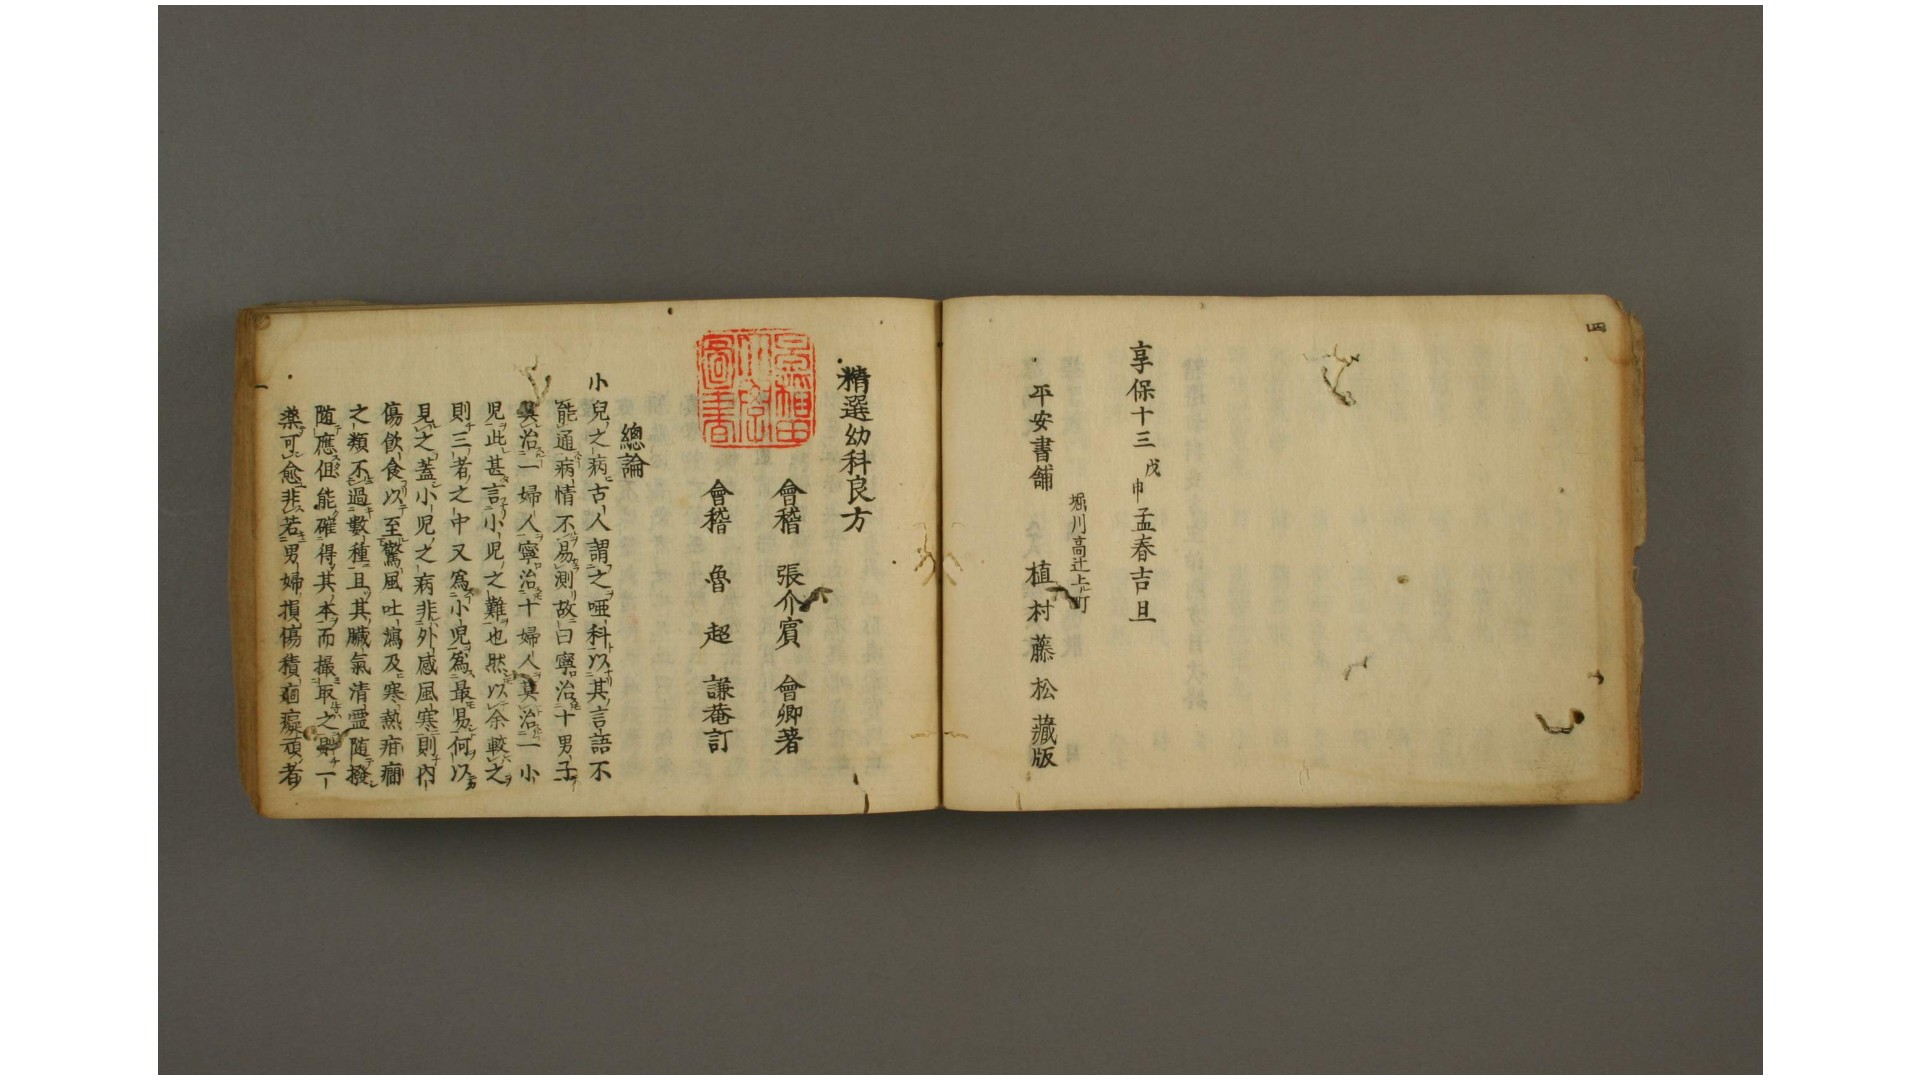 四
享保十三戊申孟春吉旦
堀川高辻上ル町
平安書舗 植村藤松藏版
精選幼科良方
會稽 張介賓 會卿著
會稽 魯超 謙菴訂
總論
小兒之病古人謂之啞科以其言語不
能通病情不易測故曰寧治十男子
莫治一婦人寧治十婦人莫治一小
児此甚言小児之難也然以余較之
則三者之中又爲小児爲最易何以
見之蓋小児之病非外感風寒則内
傷飲食以至驚風吐瀉及寒熱疳癇
之類不過數種且其臓氣清靈随撥
随應但能確得其本而撮取之則一
藥可愈非若男婦損傷積痼癡頑者
一